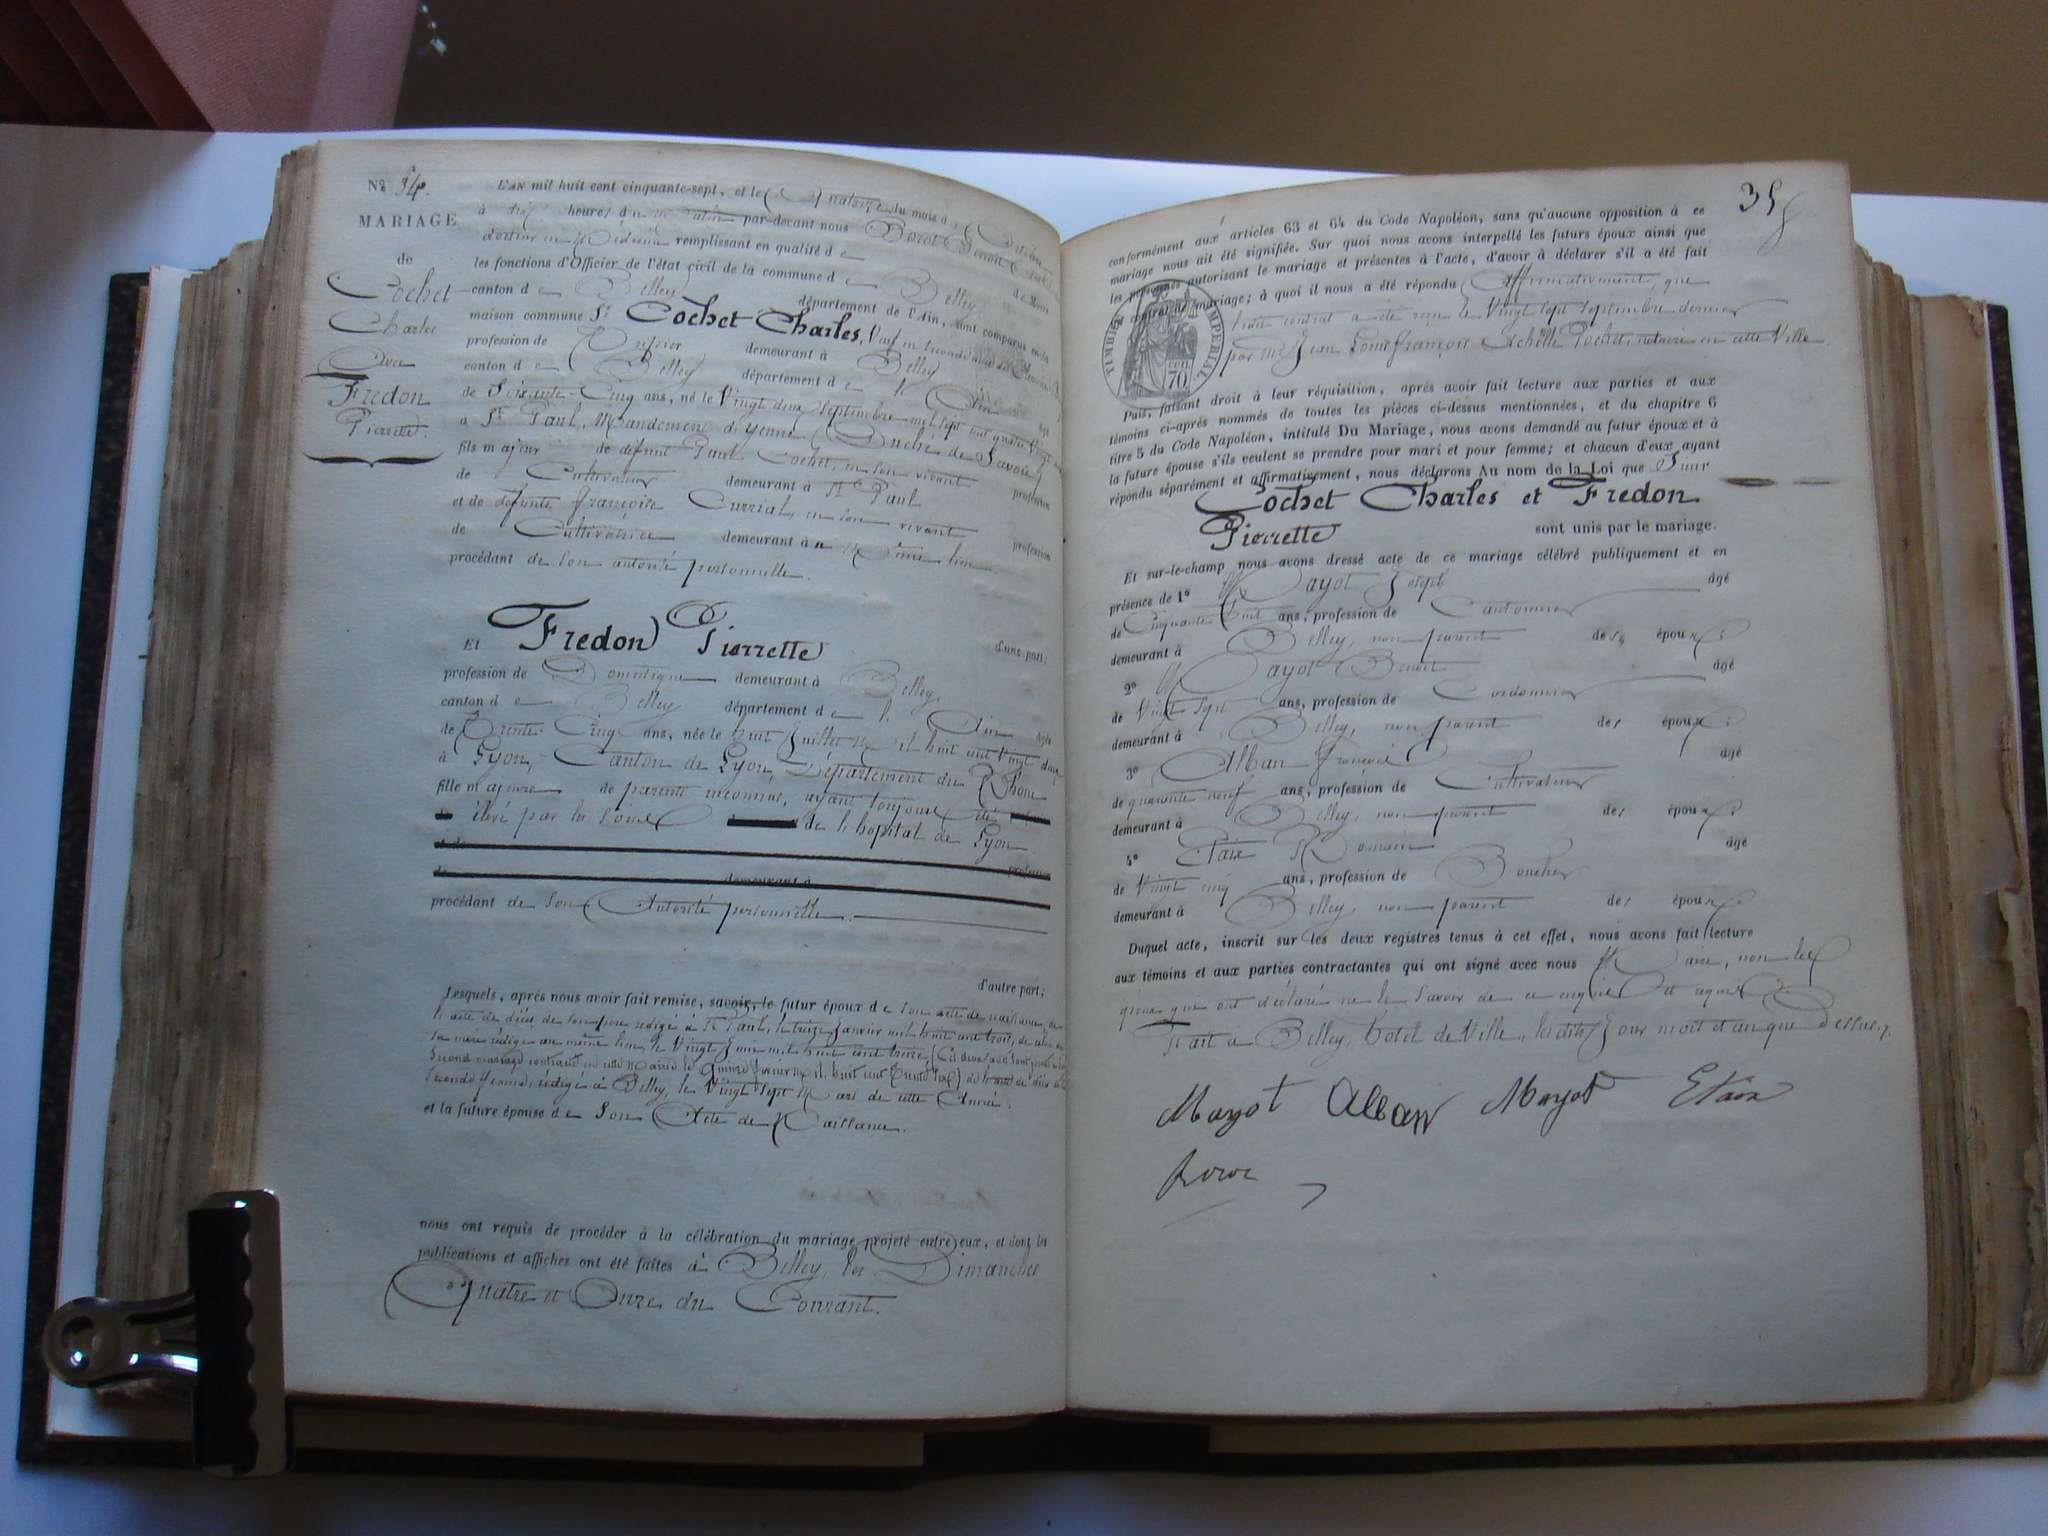 Nº 34.
MARIAGE
de
Cochet
Charles
Avec
Fredon
Pierrette.
L'an mil huit cent cinquante-sept, et le quatorze du mois d'Octobre
à dix heures du matin par-devant nous
docteur en Médecine remplissant en qualité de
les fonctions d'Officier de l'état civil de la commune de Belley
canton de Belley département de l'Ain, sont comparus en la
maison commune Sr Cochet Charles, Veuf en
profession de demeurant à Belley
canton de Belley département de l'Ain âgé
de Soixante-Cinq ans, né le Vingt deux Septembre mil sept cent quatre Vingt
à St Paul, Mandement d'Yenne (Duché de Savoie)
fils majeur de défunt Paul Cochet, en son vivant profession
de Cultivateur demeurant à St Paul
et de défunte Françoise Curria, en son vivant profession
de Cultivatrice demeurant à même lieu
procédant de son autorité personnelle.
d'une part;
Et Fredon Pierrette
profession de Domestique demeurant à Belley,
canton de Belley département de l'Ain âgée
de Trente-Cinq ans, née le huit Juillet Mil huit cent Vingt deux
à Lyon, Canton de Lyon, Département du Rhône
fille majeure de parents inconnus, ayant toujours été
élevé par les soins de l'hôpital de Lyon
et de profession
de demeurant à
procédant de son Autorité personnelle.
d'autre part;
Lesquels, après nous avoir fait remise, savoir, le futur époux de son acte de naissance, de
l'acte de décès de son père rédigé à St Paul, le treize Janvier mil huit cent trois, de celui de
sa mère rédigé au même lieu le Vingt Juin mil huit cent treize,
Second mariage contracté en cette Mairie le quinze Février Mil huit cent trente six) de l'acte de décès de sa
Seconde femme, rédigé à Belley, le Vingt Sept Mars de cette Année.
et la future épouse de Son Acte de Naissance.
nous ont requis de procéder à la célébration du mariage projeté entre eux, et dont les
publications et affiches ont été faites à Belley, les Dimanches
Quatre et Onze du Courant.
35
conformément aux articles 63 et 64 du Code Napoléon, sans qu'aucune opposition à ce
mariage nous ait été signifiée. Sur quoi nous avons interpellé les futurs époux ainsi que
les personnes autorisant le mariage et présentes à l'acte, d'avoir à déclarer s'il a été fait
un contrat de mariage; à quoi il nous a été répondu affirmativement, que
contrat a été reçu le Vingt Sept Septembre dernier
par Me Jean Louis François Achille Pochet, notaire en cette Ville.
TIMBRE IMPERIAL
70
Puis, faisant droit à leur réquisition, après avoir fait lecture aux parties et aux
témoins ci-après nommés de toutes les pièces ci-dessus mentionnées, et du chapitre 6
titre 5 du Code Napoléon, intitulé Du Mariage, nous avons demandé au futur époux et à
la future épouse s'ils veulent se prendre pour mari et pour femme; et chacun d'eux, ayant
répondu séparément et affirmativement, nous déclarons Au nom de la Loi que Sieur
Cochet Charles et Fredon
Pierrette sont unis par le mariage.
Et sur-le-champ nous avons dressé acte de ce mariage célébré publiquement et en
présence de 1º Mayot Joseph âgé
de Cinquante huit ans, profession de Cantonnier
demeurant à Belley, non parent des époux;
2º Mayot Benoit âgé
de Vingt Sept ans, profession de Cordonnier
demeurant à Belley, non parent des époux;
3º Alban François âgé
de quarante neuf ans, profession de Cultivateur
demeurant à Belley, non parent des époux;
4º Romain âgé
de Vingt cinq ans, profession de Boucher
demeurant à Belley, non parent des époux.
Duquel acte, inscrit sur les deux registres tenus à cet effet, nous avons fait lecture
aux témoins et aux parties contractantes qui ont signé avec nous Maire, non les
époux qui ont déclaré ne le savoir de ce enquis et requis
Fait à Belley, hotel de Ville, les dits Jour mois et an que Dessus.
Mayot Alban Mayot